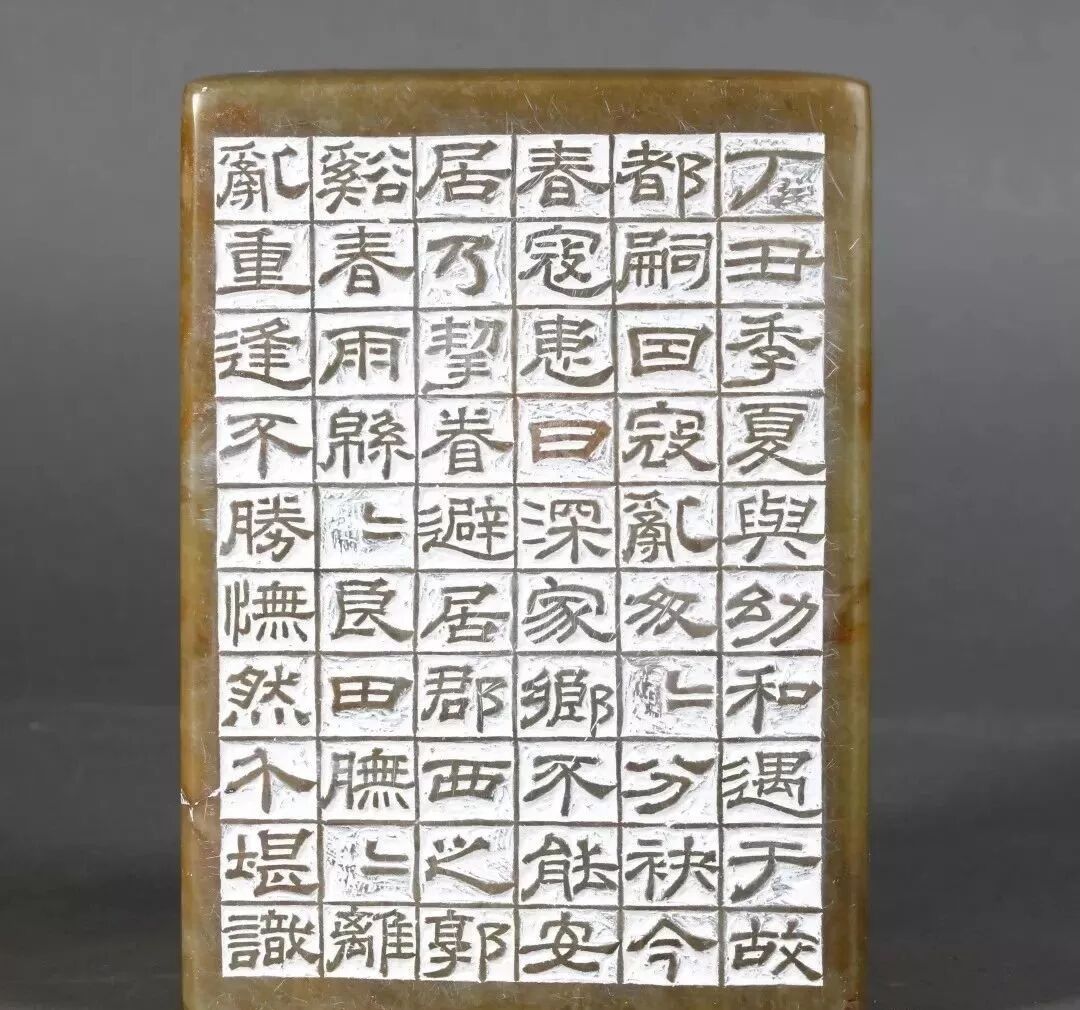 丁丑季夏與幼和遇于故
都嗣囙寇亂匆〻分袂今
春寇患日深家鄉不能安
居乃挈眷避居郡西之郭
谿春雨緜〻良田膴〻離
亂重逢不勝憮然不堪識